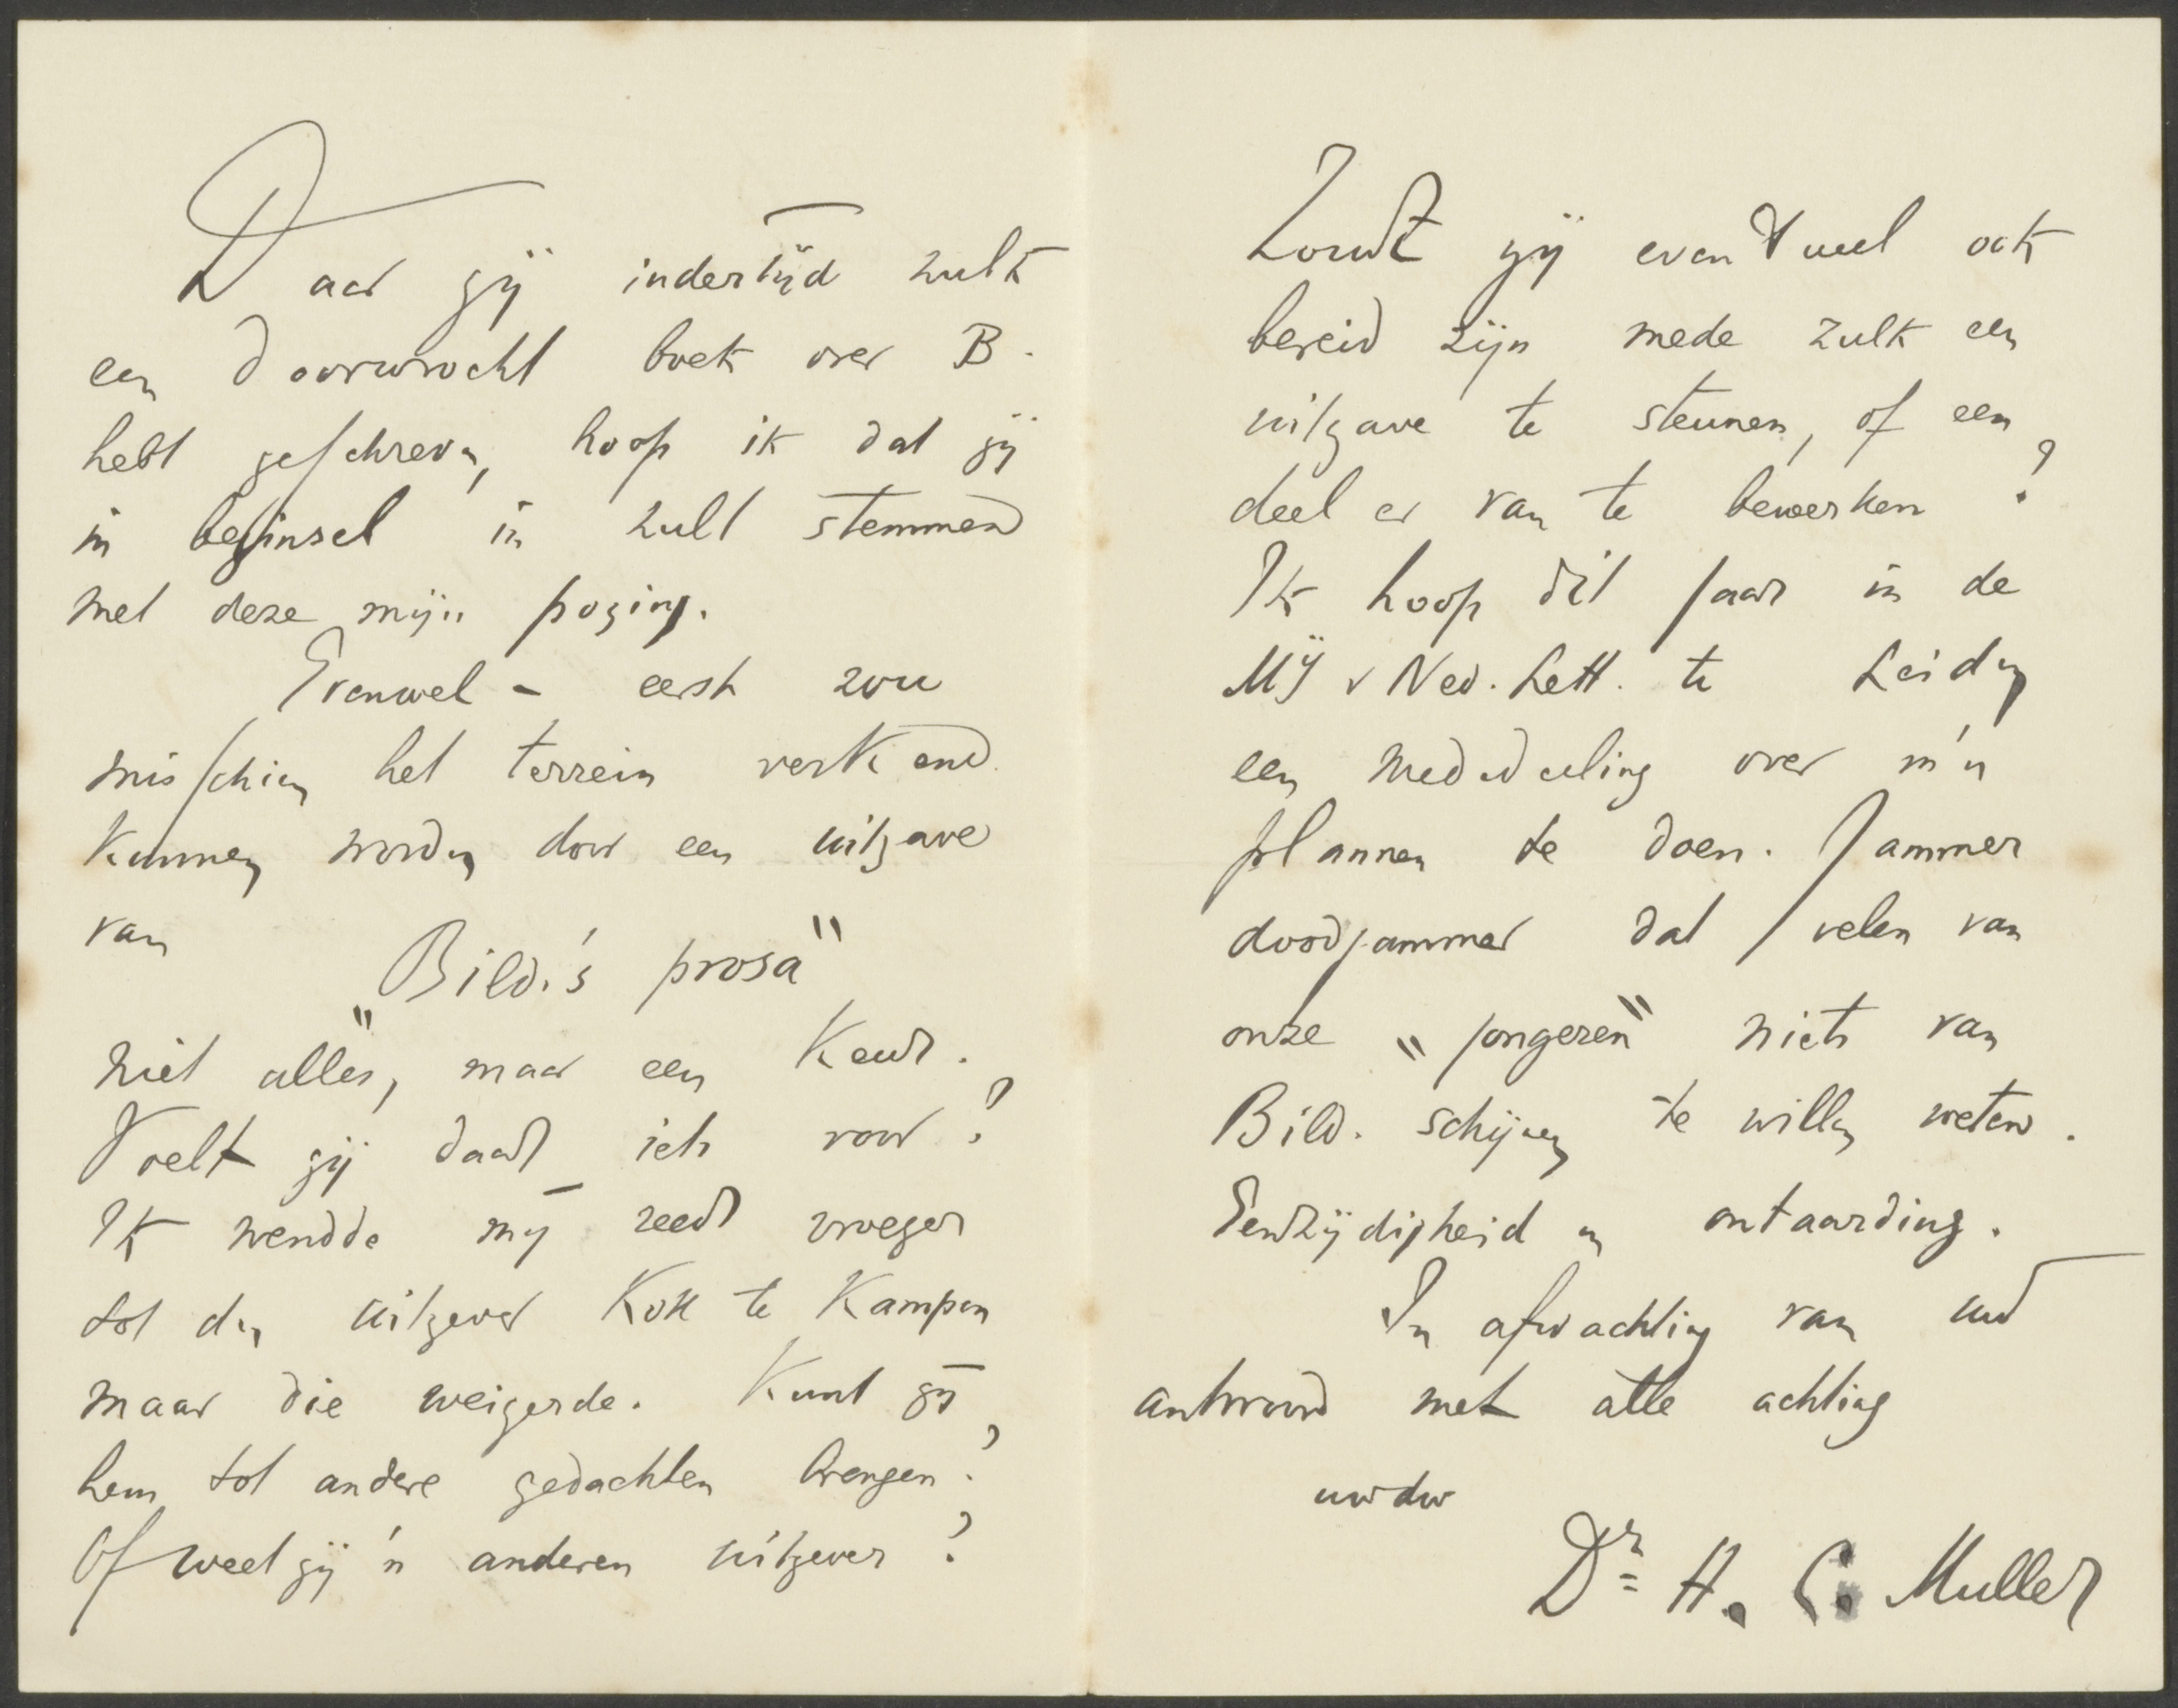 Daar gij indertijd zulk
een doorwrocht boek over B.
hebt geschreven, hoop ik dat gij
in beginsel in zult stemmen
met deze mijn poging.
Evenwel – eerst zou
misschien het terrein verkend
kunnen worden door een uitgave
van
„Bild.'s prosa"
niet alles, maar een keur.
Voelt gij daar iets voor?
Ik wendde mij reeds vroeger
tot den uitgever Kok te Kampen
maar die weigerde. Kunt gij
hem tot andere gedachten brengen?
Of weet gij 'n anderen uitgever?
Zoudt gij eventueel ook
bereid zijn mede zulk een
uitgave te steunen, of een
deel er van te bewerken?
Ik hoop dit jaar in de
Mij v Ned. Lett. te Leiden
een mededeeling over m'n
plannen te doen. Jammer
doodjammer dat velen van
onze „jongeren" niets van
Bild. schijnen te willen weten.
Eenzijdigheid en ontaarding.
In afwachting van uw
antwoord met alle achting
uwdw
Dr. H. C. Muller